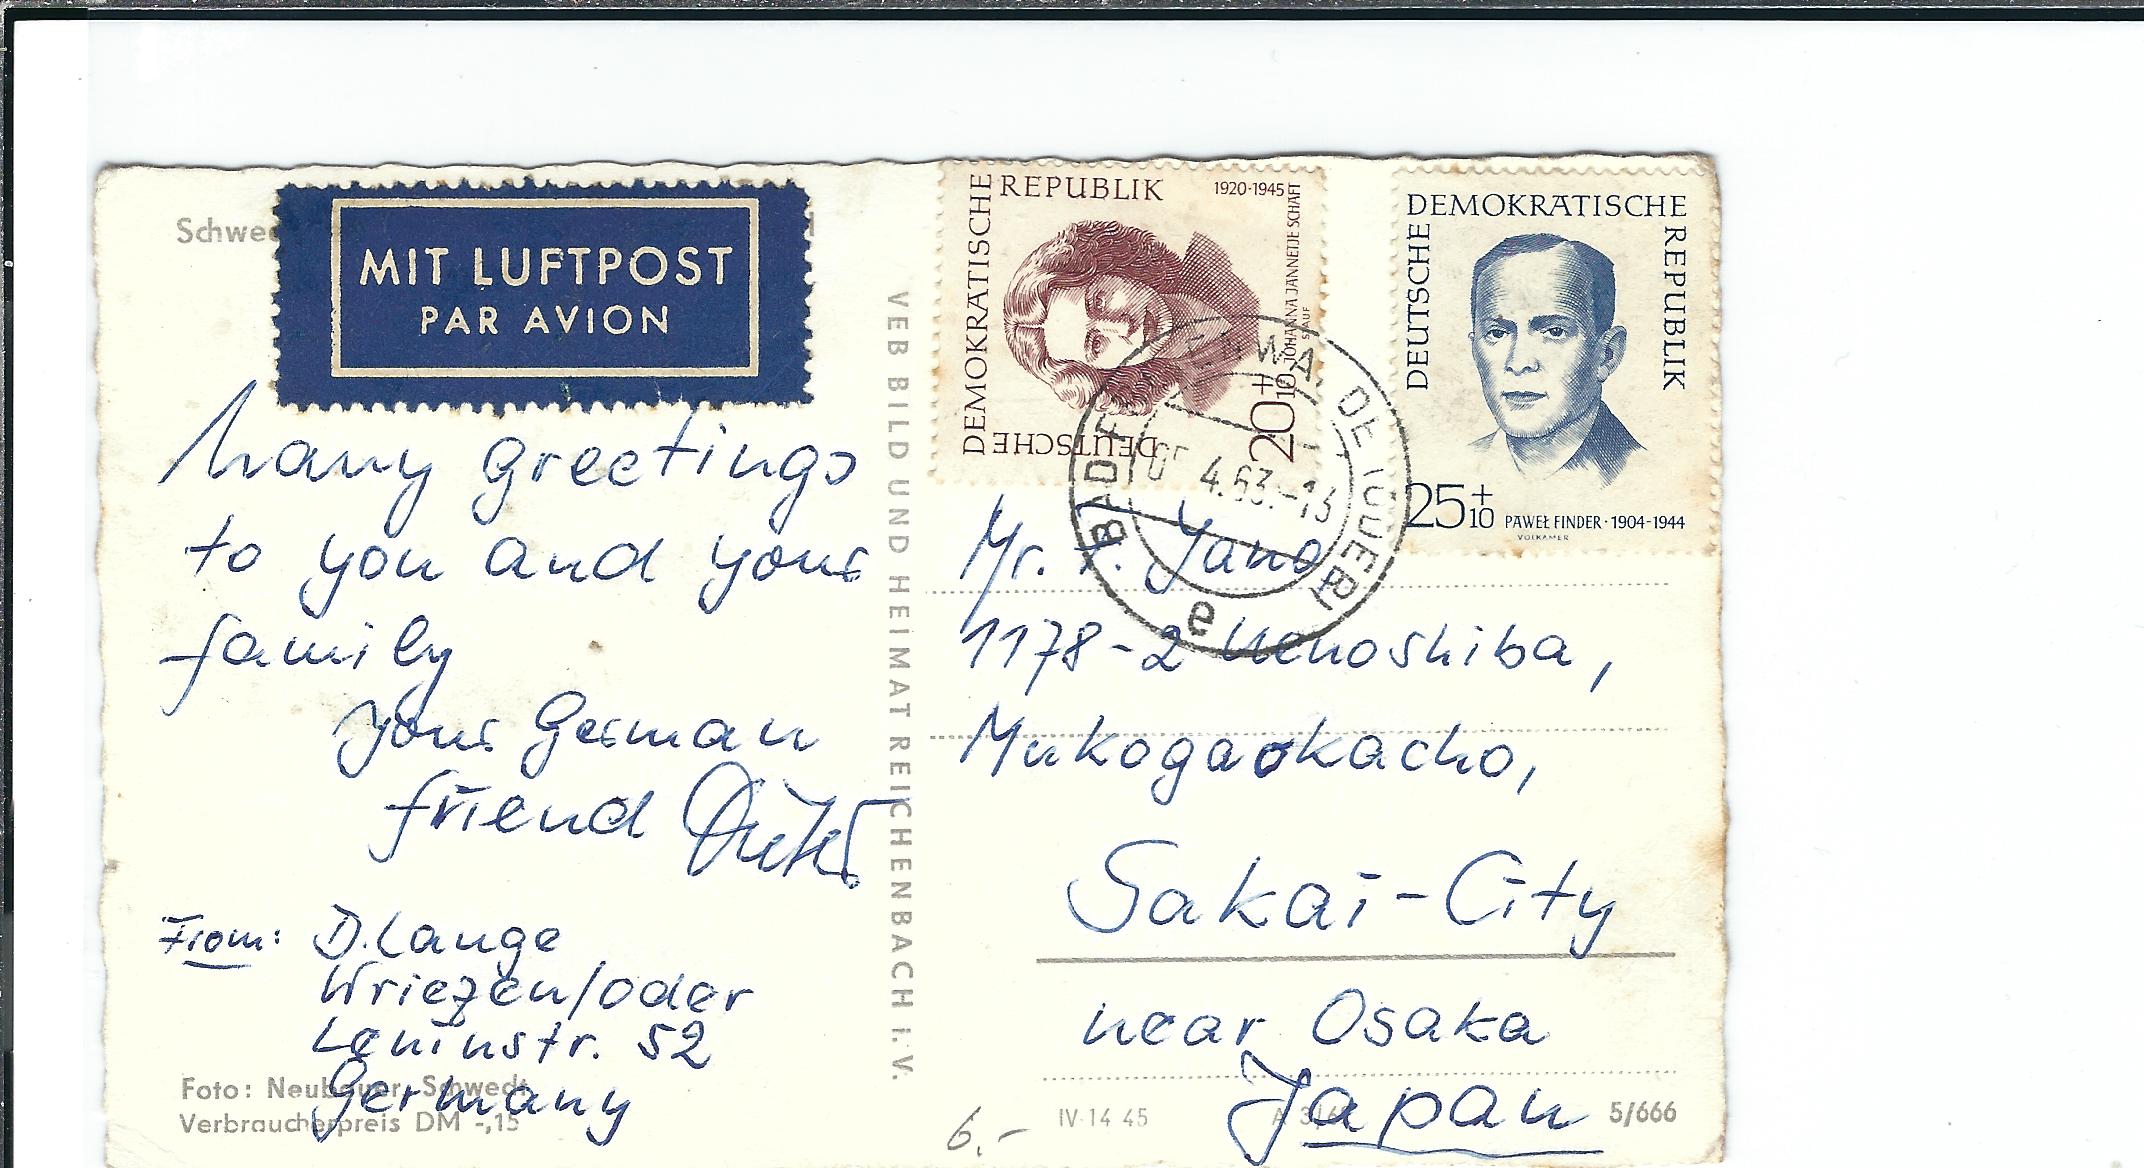 MIT LUFTPOST
PAR AVION
Many greetings
to you and your
family
your German
friend Dieter
From: D. Lange
Wriezen/Oder
Leninstr. 52
Germany
Foto: Neubauer, Schwedt
Verbraucherpreis DM -,15
VEB BILD UND HEIMAT REICHENBACH i. V.
DEUTSCHE
DEMOKRATISCHE
REPUBLIK
1920-1945
JOHANNA JANNETJE SCHAFT
20+10
DEUTSCHE
DEMOKRATISCHE
REPUBLIK
25+10 PAWEŁ FINDER · 1904-1944
VOLKAMER
BAD FREIENWALDE (ODER)
4.63.-13
e
Mr. Yano
1178-2 Uenoshiba,
Mukogaokacho,
Sakai-City
near Osaka
Japan
6.-
IV-14 45
5/666